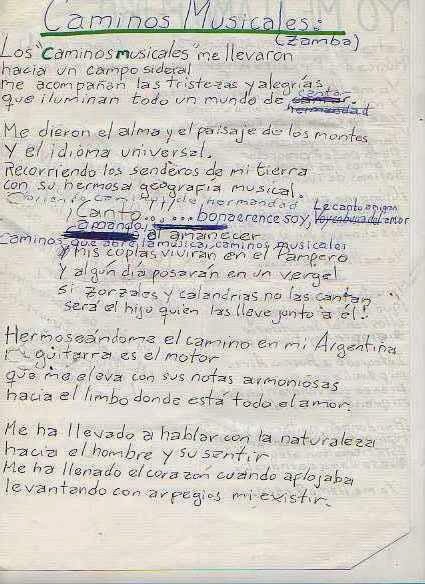 Caminos Musicales:
(Zamba)
Los "Caminos musicales" me llevaron
hacia un campo sideral
me acompañan las tristezas y alegrías
cantar
que iluminan todo un mundo de
hermandad
Me dieron el alma y el paisaje de los montes
Y el idioma universal.
Recorriendo los senderos de mi tierra
con su hermosa geografía musical.
de hermandad
¡Canto... ... bonaerence soy, Le canto a mi gran amor
amando, el amanecer
Caminos que abre la musica, caminos musicales
Y mis coplas vivirán en el Pampero
Y algun día posarán en un vergel
si zorzales y calandrias no las cantan
será el hijo quien las lleve junto a él!
Hermoseándome el camino en mi Argentina
mi guitarra es el motor
que me eleva con sus notas armoniosas
hacia el limbo donde está todo el amor.
Me ha llevado a hablar con la naturaleza
hacia el hombre y su sentir
Me ha llenado el corazón cuando aflojaba
levantando con arpegios mi existir.